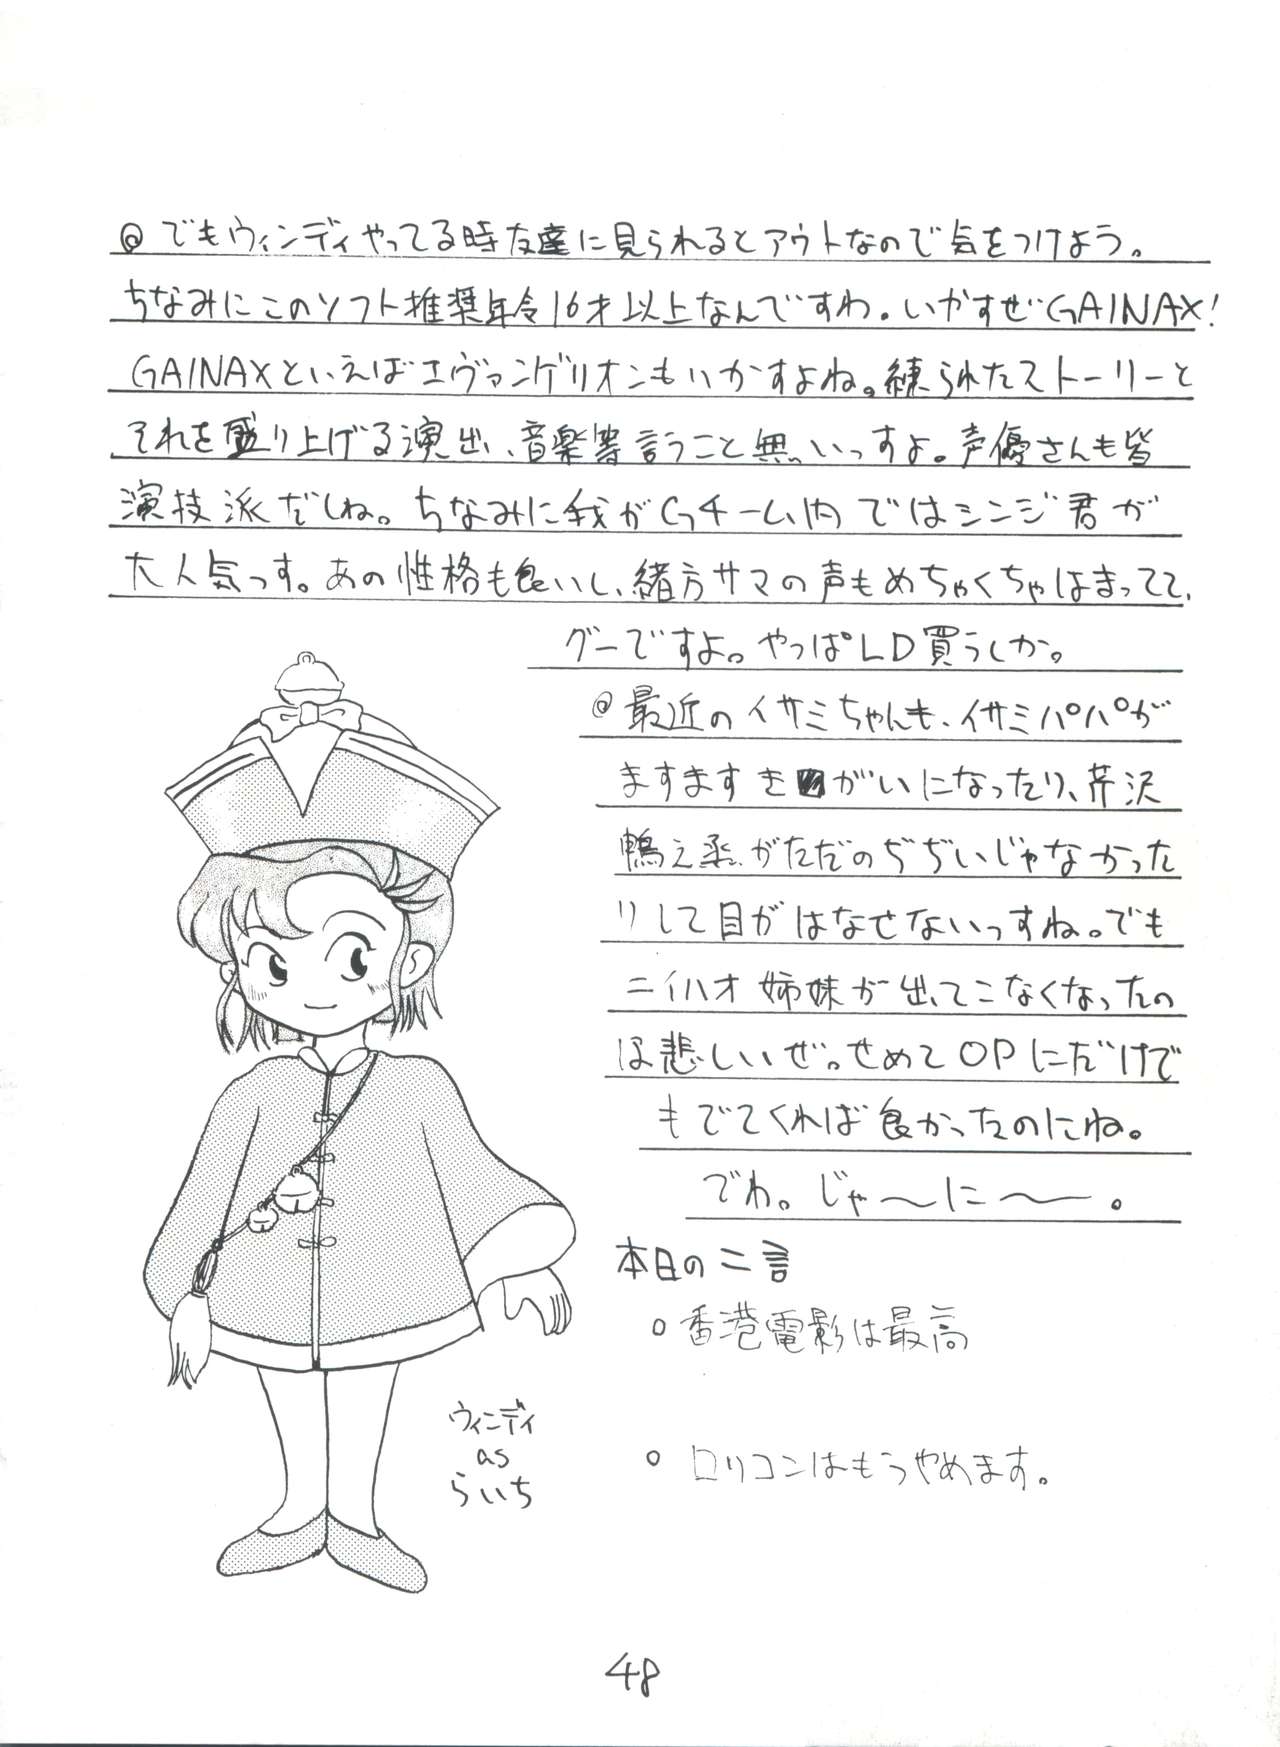 ◎でもウィンディやってる時友達に見られるとアウトなので気をつけよう。
ちなみにこのソフト推奨年令16才以上なんですわ。いかすぜGAINAX！
GAINAXといえばエヴァンゲリオンもいかすよね。練られたストーリーと
それを盛り上げる演出、音楽等言うこと無いっすよ。声優さんも皆
演技派だしね。ちなみに我がGチーム内ではシンジ君が
大人気っす。あの性格も良いし、緒方サマの声もめちゃくちゃはまってて、
グーですよ。やっぱLD買うしか。
◎最近のイサミちゃんも、イサミパパが
ますますきがいになったり、芹沢
鴨之丞がただのぢぢいじゃなかった
りして目がはなせないっすね。でも
ニイハオ姉妹が出てこなくなったの
は悲しいぜ。せめてOPにだけで
もでてくれば良かったのにね。
でわ。じゃ～に～。
本日の二言
○香港電影は最高
○ロリコンはもうやめます。
ウィンディ
as
らいち
48